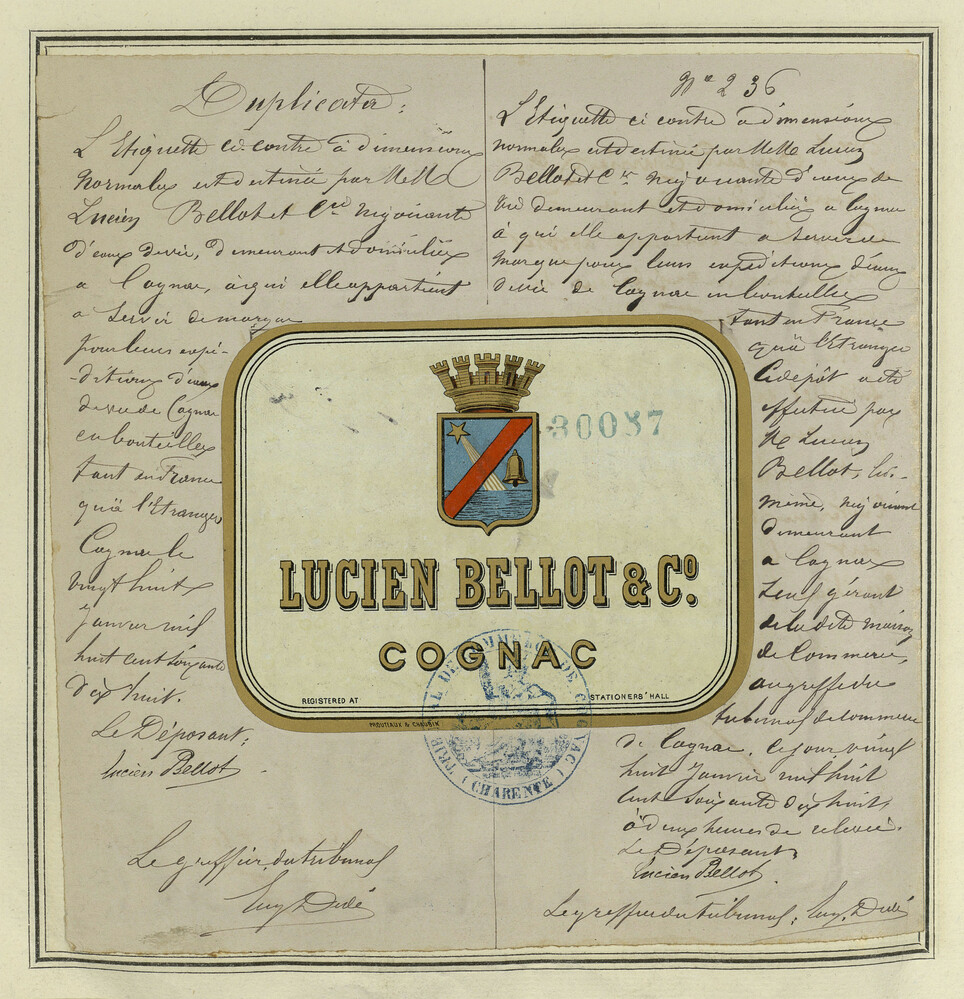 Duplicata :
L'Etiquette ci-contre à dimensions
normales est destinée par MMrs
Lucien Bellot et Cie négociants
d'eaux de vie, demeurant et domiciliés
a Cognac, à qui elle appartient
a servir de marque
pour leurs expé-
-ditions d'eaux
de vie de Cognac
en bouteilles
tant en France
qu'à l'Etranger
Cognac le
vingt huit
Janvier mil
huit cent soixante
dix huit.
Le Déposant :
Lucien Bellot
Le greffier du tribunal
Eug Dedé
No 236
L'Etiquette ci contre à dimensions
normales est destinée par MM Lucien
Bellot et Cie négociants d'eaux de
vie demeurant et domiciliés a Cognac
à qui elle appartient a servir de
marque pour leurs expéditions d'eaux
de vie de Cognac en bouteilles
tant en France
qu'à l'Etranger
Ce dépôt a été
effectué par
M Lucien
Bellot, lui-
même, négociant
demeurant
a Cognac
seul gérant
de la dite maison
de Commerce,
au greffe du
tribunal de commerce
de Cognac, le jour vingt
huit Janvier mil huit
cent soixante dix huit,
à deux heures de relevée.
Le Déposant,
Lucien Bellot
Le greffier du tribunal, Eug. Dedé
30087
LUCIEN BELLOT & Co.
COGNAC
REGISTERED AT STATIONERS' HALL
PROUTEAUX & CHAUBIN
TRIBUNAL DE COMMERCE DE COGNAC
(CHARENTE)